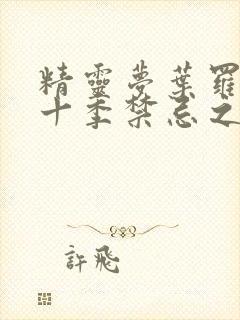 精靈夢葉羅
十季禁忌之
許飛